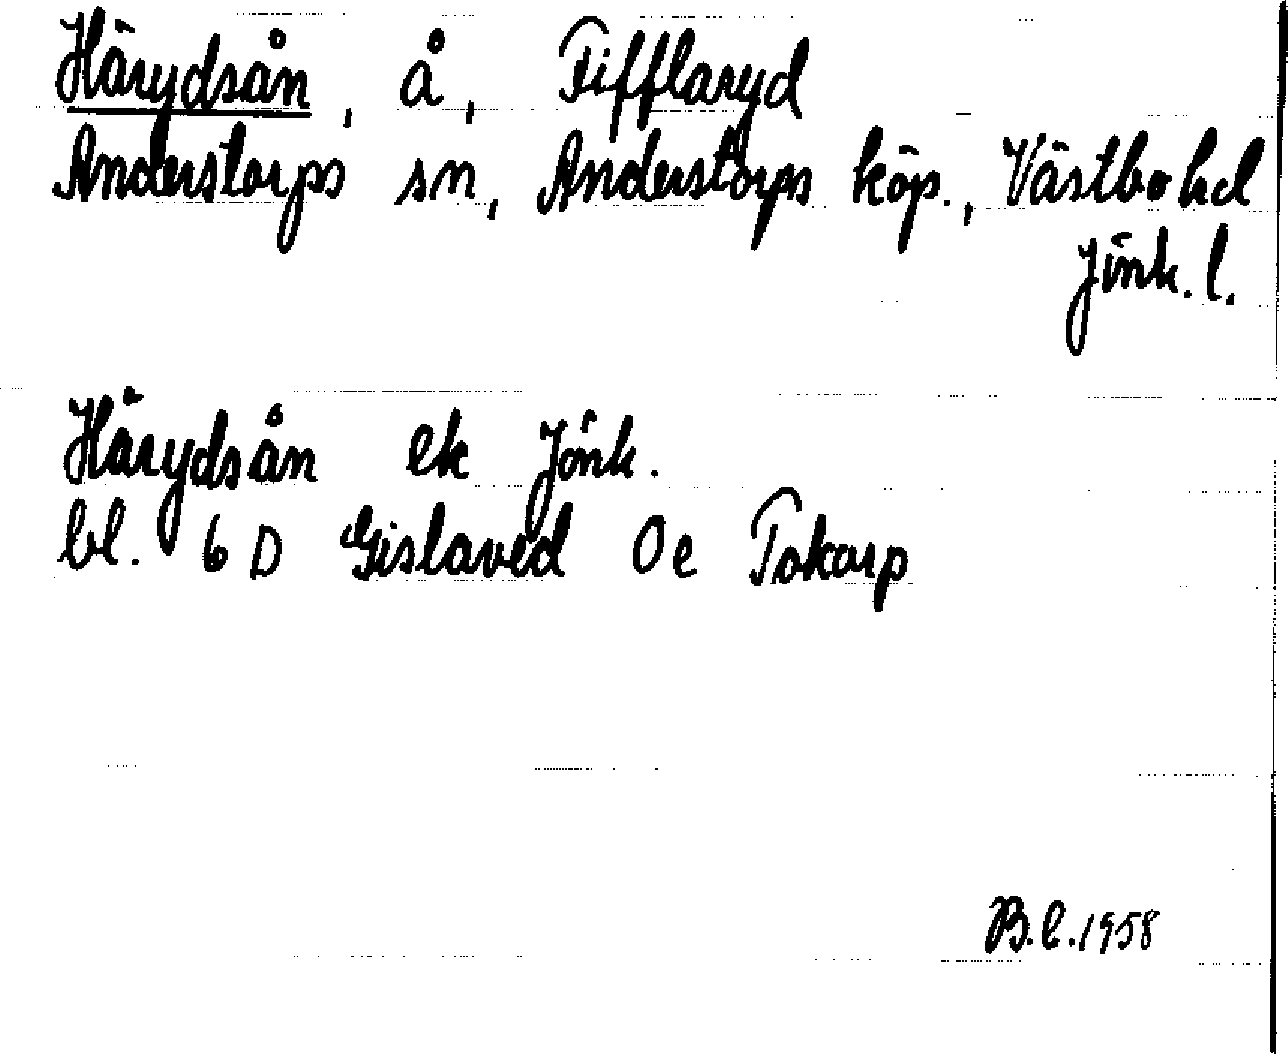 Härydsån, å, Fifflaryd
Anderstorps sn, Anderstorps köp., Västbo hd
Jönk. l.
Härydsån ek Jönk.
bl. 6 D Gislaved 0e Tokarp
B.E. 1958